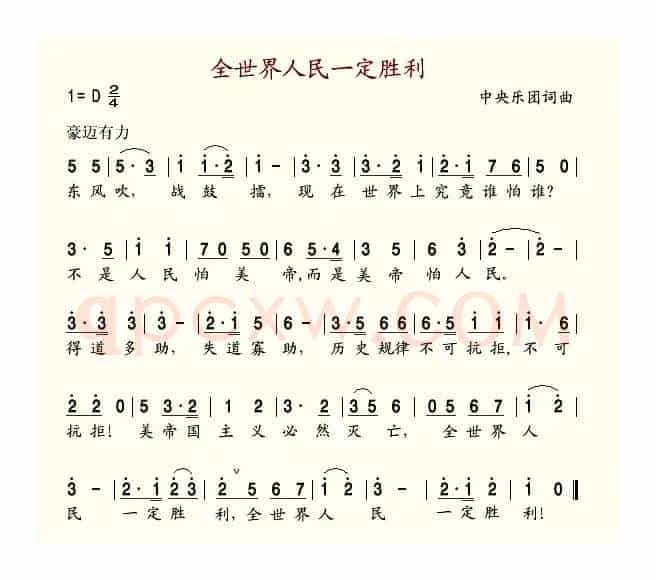 全世界人民一定胜利
1= D 2/4
中央乐团词曲
豪迈有力
5 5 | 5 · 3 | i i · 2 | i - | 3 · 3 | 3 · 2 i | 2 · i 7 6 | 5 0 |
东风吹, 战鼓擂, 现在世界上究竟谁怕谁?
3 · 5 | i i | 7 0 5 0 | 6 5 · 4 | 3 5 | 6 3 | 2 - | 2 - |
不是人民怕美帝,而是美帝怕人民。
3 · 3 | 3 - | 2 · i 5 | 6 - | 3 · 5 6 6 | 6 · 5 i i | i · 6 |
得道多助, 失道寡助, 历史规律不可抗拒,不可
2 2 0 | 5 3 · 2 | 1 2 | 3 · 3 | 3 5 6 | 0 5 6 7 | i 2 |
抗拒! 美帝国主义必然灭亡, 全世界人
3 - | 2 · i 2 3 | 2 5 6 7 | i 2 | 3 - | 2 · i 2 | i 0 ‖
民 一定胜利,全世界人民 一定胜利!
qpcxw.COM